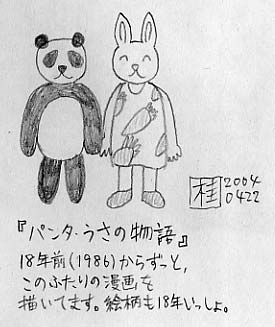 桂 2004
0422
『パンタ・うさの物語』
18年前(1986)からずっと,
このふたりの漫画を
描いてます。絵柄も18年いっしょ。